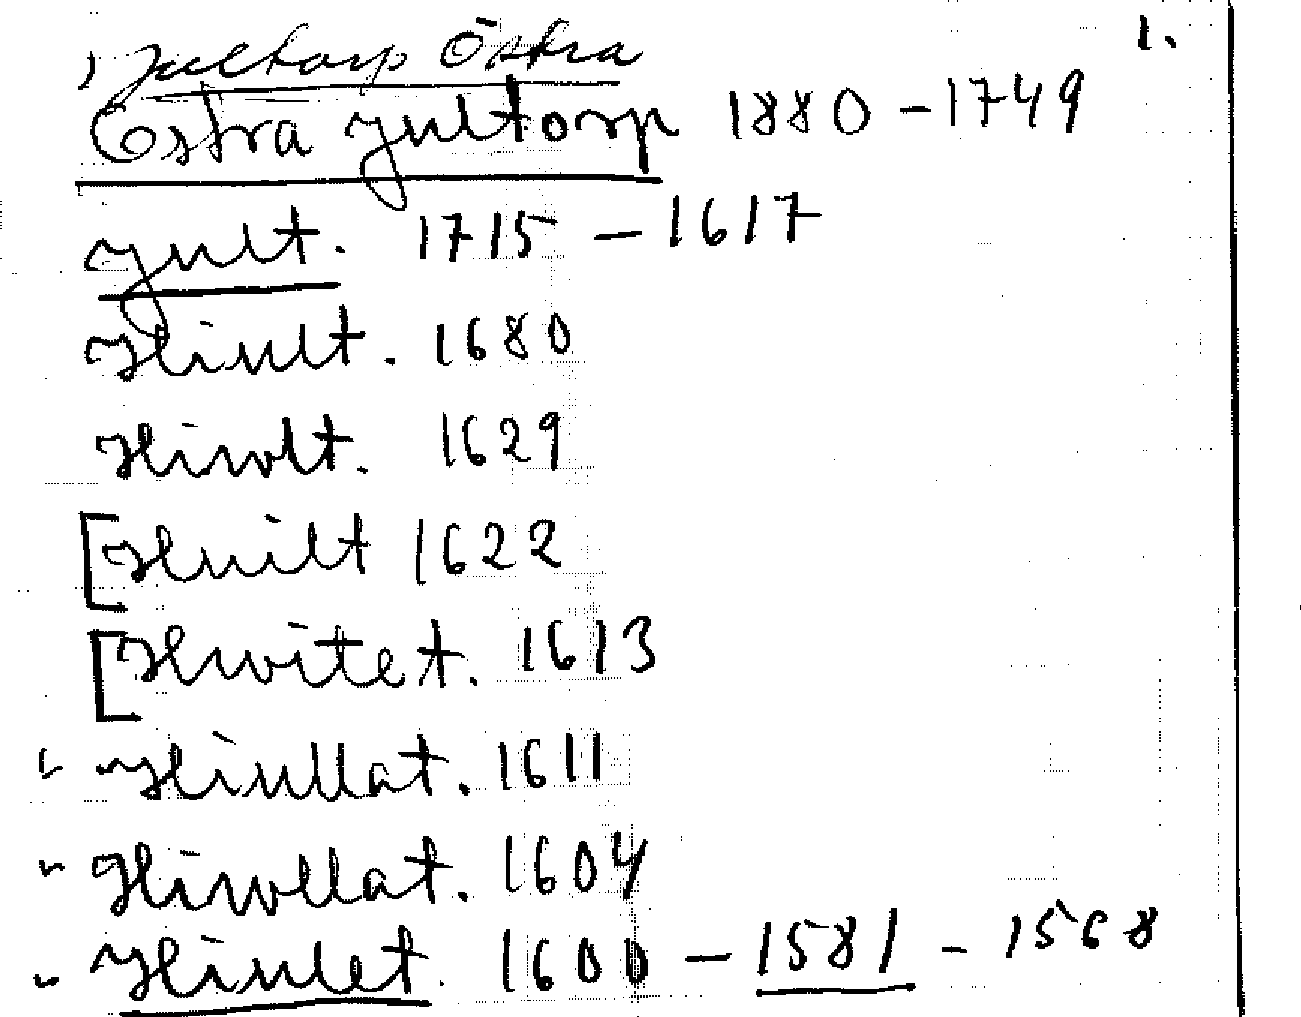 1.
Jultorp Östra
Östra Jultorp 1880 - 1749
Jult. 1715 - 1617
Hiult. 1680
Hiwlt. 1629
[Huilt 1622
[Hwitet. 1613
" Hiullat. 1611
" Hiwllat. 1604
" Hiulet. 1600 - 1581 - 1568